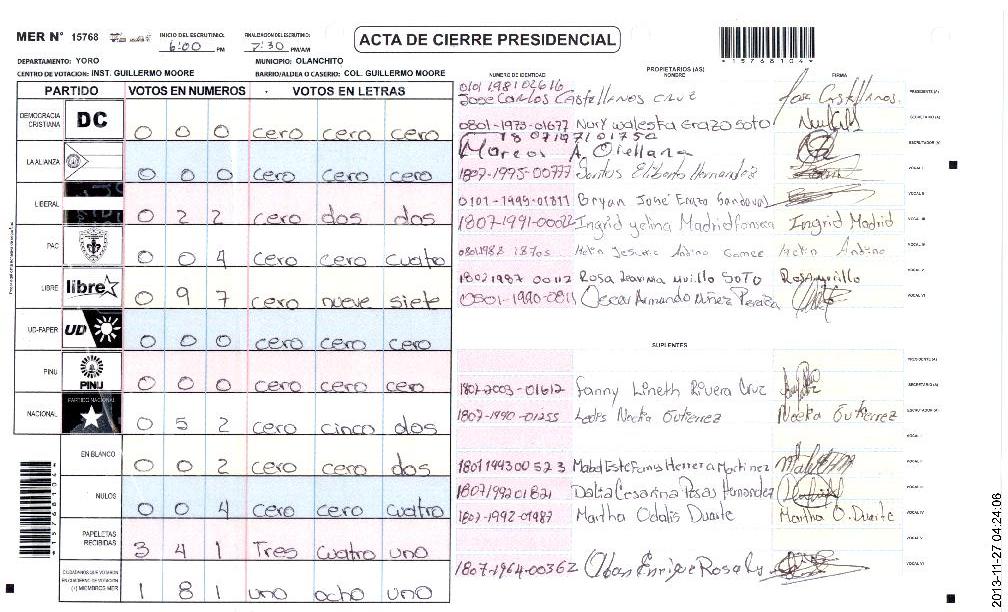 MER N° 15768 INICIO DEL ESCRUTINIO: 6:00 PM FINALIZACIÓN DEL ESCRUTINIO: 7:30 PM/AM
ACTA DE CIERRE PRESIDENCIAL
*15768104*
DEPARTAMENTO: YORO MUNICIPIO: OLANCHITO
CENTRO DE VOTACION: INST. GUILLERMO MOORE BARRIO/ALDEA O CASERIO: COL. GUILLERMO MOORE
PARTIDO VOTOS EN NUMEROS VOTOS EN LETRAS
DEMOCRACIA CRISTIANA DC 0 0 0 cero cero cero
LA ALIANZA 0 0 0 cero cero cero
LIBERAL 0 2 2 cero dos dos
PAC 0 0 4 cero cero cuatro
LIBRE libre 0 9 7 cero nueve siete
UD-FAPER UD 0 0 0 cero cero cero
PINU PINU 0 0 0 cero cero cero
NACIONAL PARTIDO NACIONAL 0 5 2 cero cinco dos
EN BLANCO 0 0 2 cero cero dos
NULOS 0 0 4 cero cero cuatro
PAPELETAS RECIBIDAS 3 4 1 Tres cuatro uno
CIUDADANOS QUE VOTARON EN CUADERNO DE VOTACION (+) MIEMBROS MER 1 8 1 uno ocho uno
*15768104*
PROPIETARIOS (AS)
NUMERO DE IDENTIDAD NOMBRE FIRMA
0101 198102616 Jose Carlos Castellanos Cruz Jose Castellanos. PRESIDENTE (A)
0801-1973-01677 Nury Waleska Erazo Soto SECRETARIO (A)
18 07197101750
Marcos A. Orellana ESCRUTADOR (A)
1807-1975-00777 Santos Eliberto Hernandez VOCAL I
0101-1999-01811 Bryan José Erazo Sandoval VOCAL II
1807-1991-00022 Ingrid yelina Madrid fonseca Ingrid Madrid VOCAL III
Antino Gomez Antino VOCAL IV
18021987 00112 Rosa Murillo Soto Rosa murillo VOCAL V
0801-1990-0811 Oscar Armando Nuñez Pereira VOCAL VI
SUPLENTES
PRESIDENTE (A)
1807-2003-01612 Fanny Lineth Rivera Cruz SECRETARIO (A)
1807-1990-01255 Gutierrez Gutierrez ESCRUTADOR (A)
VOCAL I
1807199300523 Mabel Estefany Herrera Martinez VOCAL II
1807199201821 Dalia Cesarina Posas Hernandez VOCAL III
1807-1992-01987 Martha Odalis Duarte Martha O. Duarte VOCAL IV
VOCAL V
1807-1964-00362 Enrique Rosales VOCAL VI
2013-11-27 04:24:06